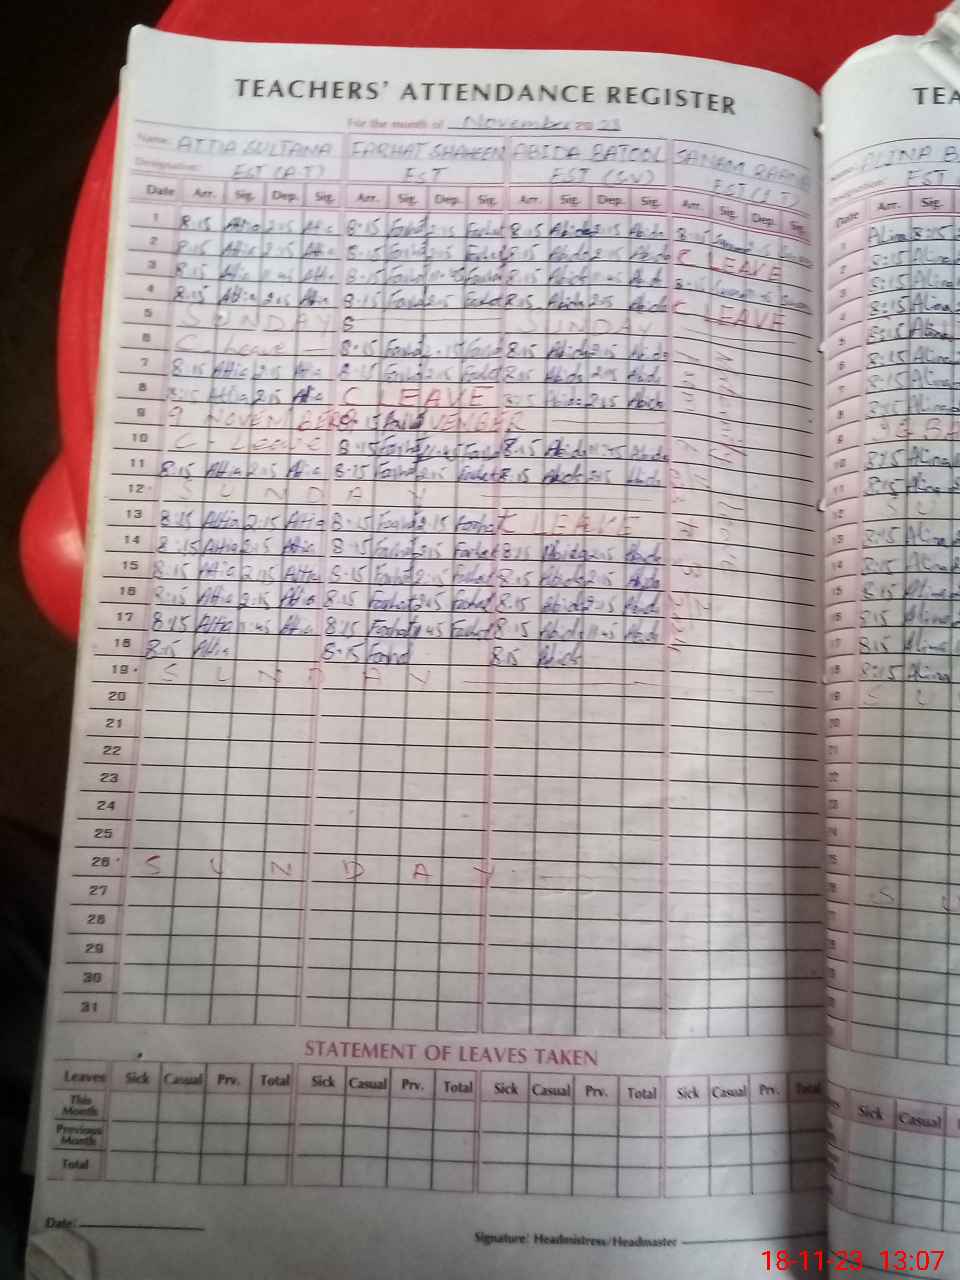 TEACHERS' ATTENDANCE REGISTER TEA
For the month of November 2023
Name: ATTIA SULTANA FARHAT SHAHEEN ABIDA BATOOL SANAM Name: ALINA
Designation: EST (A.T) EST EST (S.V) EST EST
Date Arr. Sig. Dep. Sig. Arr. Sig. Dep. Sig. Arr. Sig. Dep. Sig. Arr. Sig. Dep. Sig. Date Arr. Sig.
1 8:15 Attia 2:15 Attia 8:15 Farhat 2:15 Farhat 8:15 Abida 2:15 Abida 8:15 1 Alina 8:15
2 8:15 Attia 2:15 Attia 8:15 Farhat 2:15 Farhat 8:15 Abida 2:15 Abida C LEAVE 2 8:15 Alina
3 8:15 Attia 11:45 Attia 8:15 Farhat 11:45 Farhat 8:15 Abida 11:45 Abida 8:15 3 8:15 Alina
4 8:15 Attia 2:15 Attia 8:15 Farhat 2:15 Farhat 8:15 Abida 2:15 Abida C LEAVE 8:15 Alina
5 SUNDAY S SUNDAY 8:15 Alina
6 C-Leave 8:15 Farhat 2:15 Farhat 8:15 Abida 2:15 Abida 8:15 Alina
7 8:15 Attia 2:15 Attia 8:15 Farhat 2:15 Farhat 8:15 Abida 2:15 Abida 8:15 Alina
8 8:15 Attia 2:15 Attia C LEAVE 8:15 Abida 2:15 Abida 8:15 Alina
9 9 NOVEMBER
10 C-Leave 8:15 Farhat 11:45 Farhat 8:15 Abida 11:45 Abida 8:15 Alina
11 8:15 Attia 2:15 Attia 8:15 Farhat 2:15 Farhat 8:15 Abida 2:15 Abida 8:15 Alina
12 SUNDAY S U
13 8:15 Attia 2:15 Attia 8:15 Farhat 2:15 Farhat C LEAVE 8:15 Alina
14 8:15 Attia 2:15 Attia 8:15 Farhat 2:15 Farhat 8:15 Abida 2:15 Abida 8:15 Alina
15 8:15 Attia 2:15 Attia 8:15 Farhat 2:15 Farhat 8:15 Abida 2:15 Abida 8:15 Alina
16 8:15 Attia 2:15 Attia 8:15 Farhat 2:15 Farhat 8:15 Abida 2:15 Abida 8:15 Alina
17 8:15 Attia 11:45 Attia 8:15 Farhat 11:45 Farhat 8:15 Abida 11:45 Abida 8:15 Alina
18 8:15 Attia 8:15 Farhat 8:15 Abida 8:15 Alina
19 SUNDAY S U
20
21
22
23
24
25
26 SUNDAY S U
27
28
29
30
31
STATEMENT OF LEAVES TAKEN
Leaves Sick Casual Prv. Total Sick Casual Prv. Total Sick Casual Prv. Total Sick Casual Prv. Total Sick Casual
This Month
Previous Month
Total
Date:
Signature: Headmistress/Headmaster
18-11-23 13:07